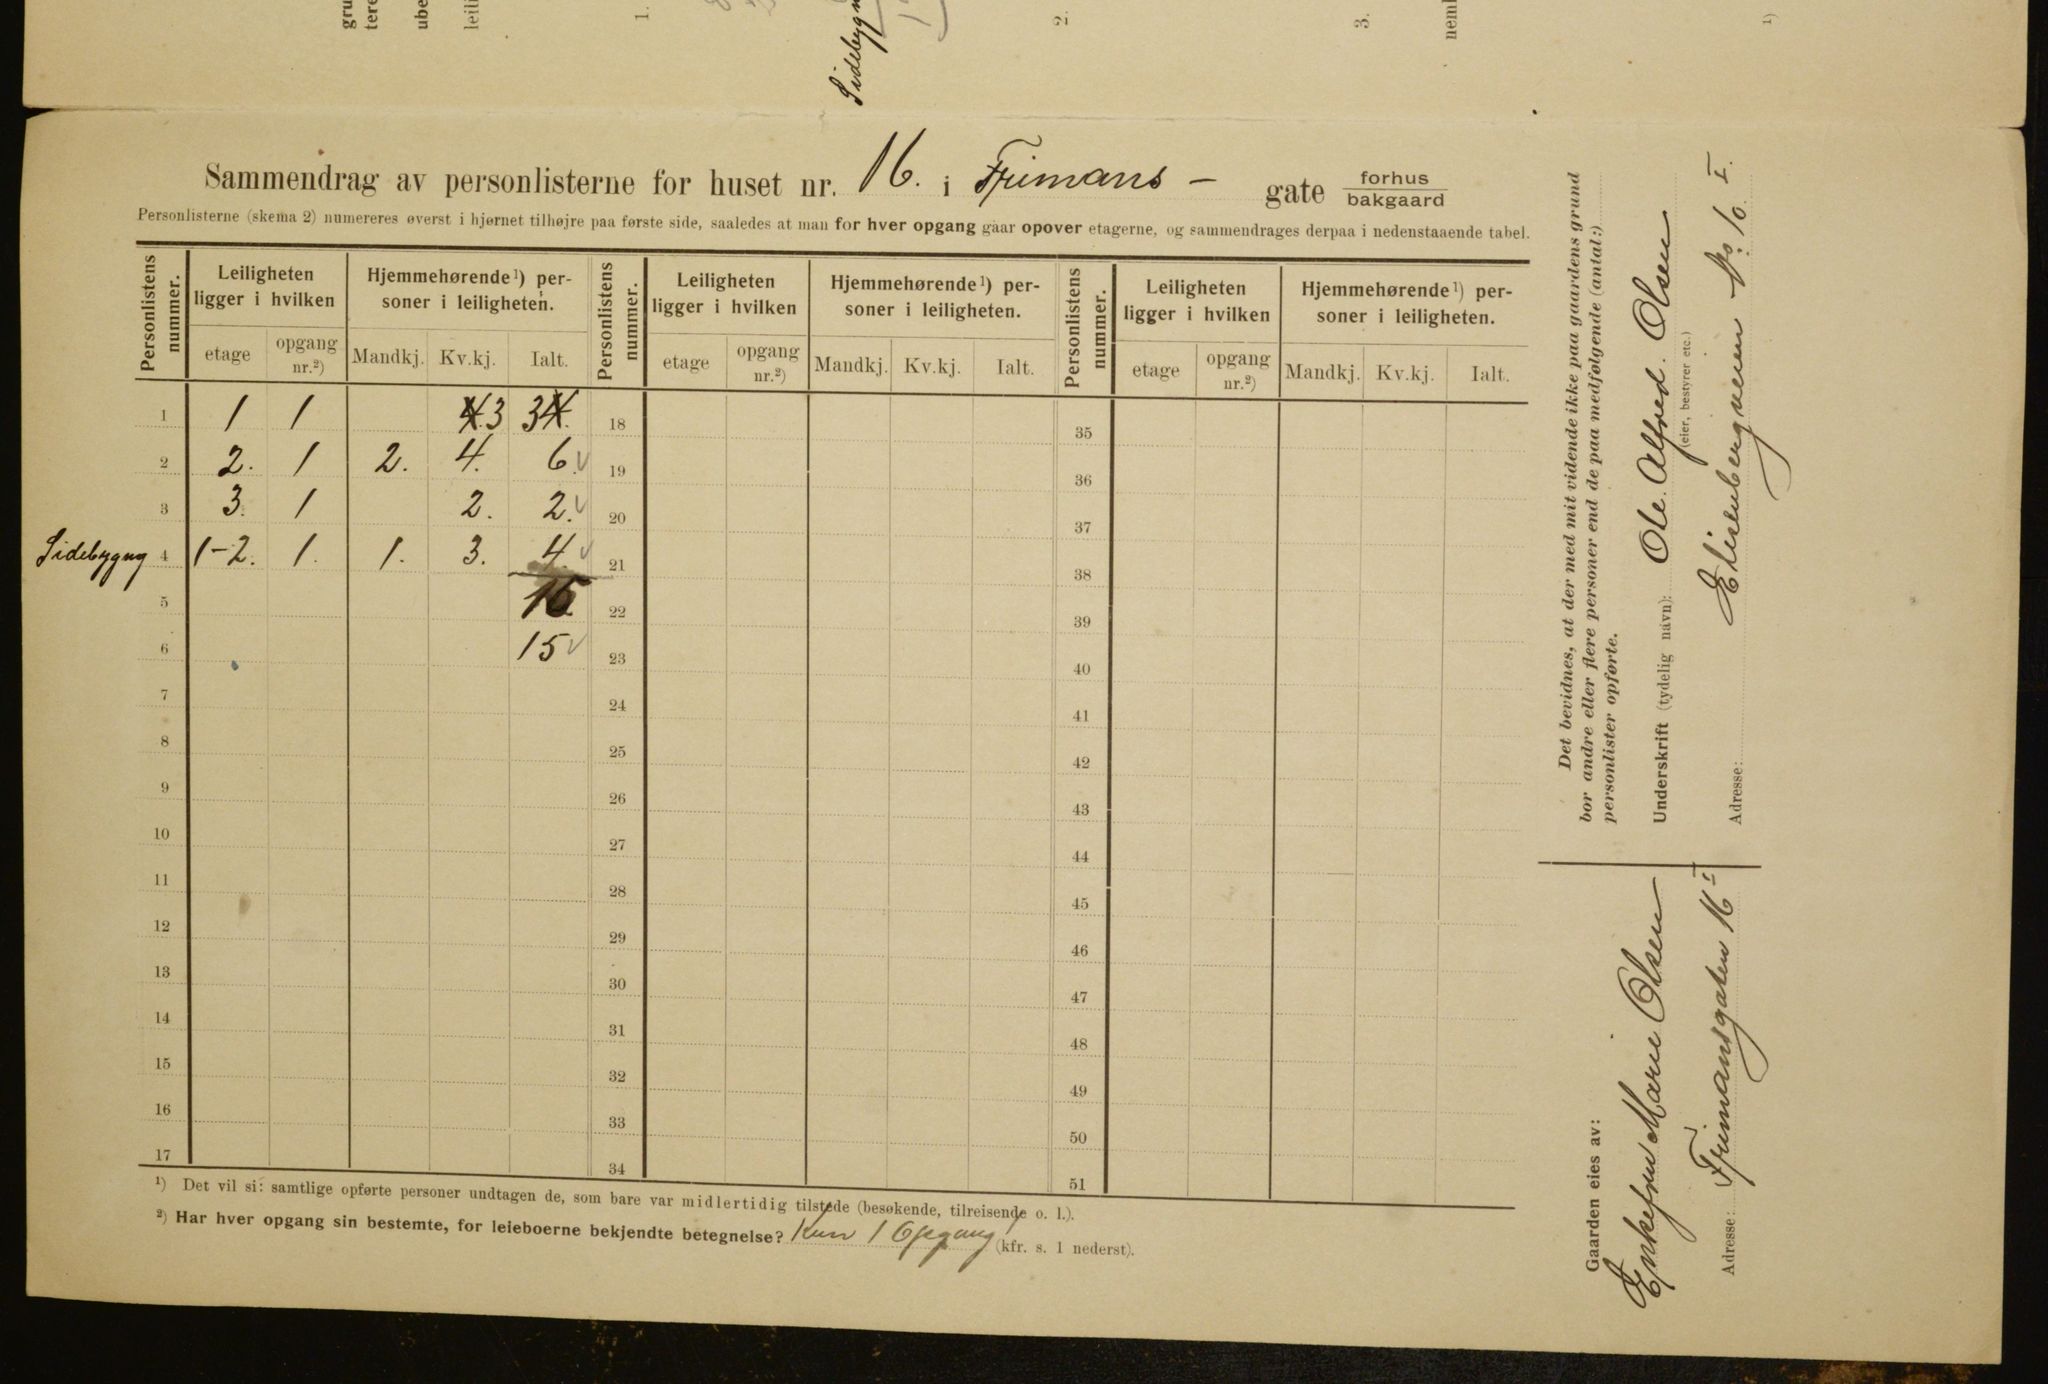 Sidebygn
1.
2.
3.
1)
Sammendrag av personlisterne for huset nr. 16. i Frimans – gate forhus
bakgaard
Personlisterne (skema 2) numereres øverst i hjørnet tilhøjre paa første side, saaledes at man for hver opgang gaar opover etagerne, og sammendrages derpaa i nedenstaaende tabel.
Personlistens nummer. | Leiligheten ligger i hvilken | Hjemmehørende¹) personer i leiligheten. | Personlistens nummer. | Leiligheten ligger i hvilken | Hjemmehørende¹) personer i leiligheten. | Personlistens nummer. | Leiligheten ligger i hvilken | Hjemmehørende¹) personer i leiligheten.
etage | opgang nr.²) | Mandkj. | Kv.kj. | Ialt. | etage | opgang nr.²) | Mandkj. | Kv.kj. | Ialt. | etage | opgang nr.²) | Mandkj. | Kv.kj. | Ialt.
1 | 1 | 1 | | 4. 3 | 3 4. | 18 | 35
2 | 2. | 1 | 2. | 4. | 6. | 19 | 36
3 | 3. | 1 | | 2. | 2. | 20 | 37
Sidebygng 4 | 1-2. | 1. | 1. | 3. | 4. | 21 | 38
5 | 16 | 22 | 39
6 | 15 | 23 | 40
7 | 24 | 41
8 | 25 | 42
9 | 26 | 43
10 | 27 | 44
11 | 28 | 45
12 | 29 | 46
13 | 30 | 47
14 | 31 | 48
15 | 32 | 49
16 | 33 | 50
17 | 34 | 51
¹) Det vil si: samtlige opførte personer undtagen de, som bare var midlertidig tilstede (besøkende, tilreisende o. l.).
²) Har hver opgang sin bestemte, for leieboerne bekjendte betegnelse? Kun 1 Opgang (kfr. s. 1 nederst).
Det bevidnes, at der med mit vidende ikke paa gaardens grund
bor andre eller flere personer end de paa medfølgende (antal:)
personlister opførte.
Underskrift (tydelig navn): Ole Alfred. Olsen
(eier, bestyrer etc.)
Adresse: Eisenbergveien No 10. I.
Gaarden eies av:
Enkefru Marie Olsen
Adresse: Frimansgaten 16 I